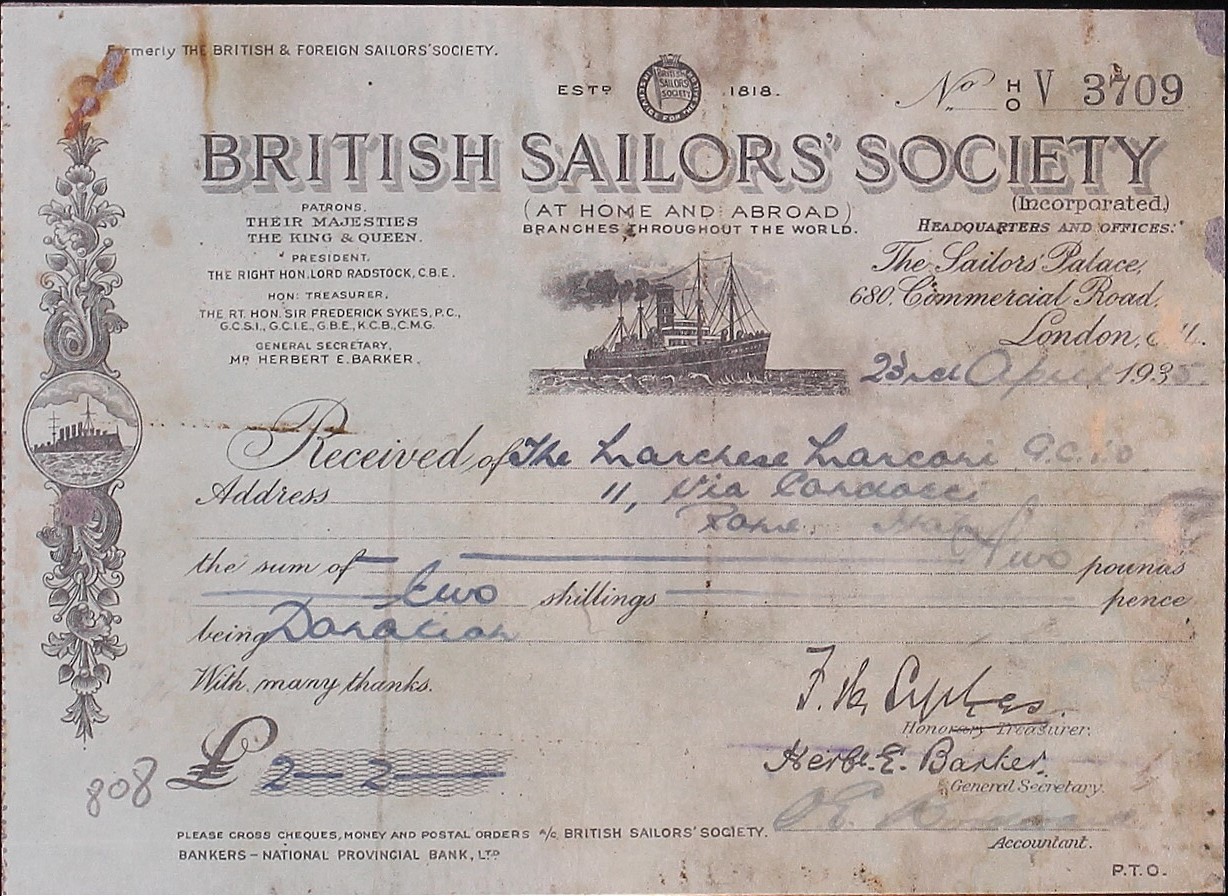 Formerly THE BRITISH & FOREIGN SAILORS' SOCIETY.
ESTD 1818.
BRITISH SAILORS SOCIETY
SERVICE FOR THE
No HO V 3709
BRITISH SAILORS' SOCIETY
(Incorporated.)
(AT HOME AND ABROAD)
BRANCHES THROUGHOUT THE WORLD.
PATRONS,
THEIR MAJESTIES
THE KING & QUEEN.
PRESIDENT,
THE RIGHT HON. LORD RADSTOCK, C.B.E.
HON: TREASURER,
THE RT. HON. SIR FREDERICK SYKES, P.C.,
G.C.S.I., G.C.I.E., G.B.E., K.C.B., C.M.G.
GENERAL SECRETARY,
MR HERBERT E. BARKER.
HEADQUARTERS AND OFFICES:
The Sailors' Palace,
680, Commercial Road,
London,
23rd April 1935.
Received of The Marchese Marconi
Address 11, Via Condotti
Rome. Italy
the sum of Two pounds
two shillings pence
being Donation
With many thanks.
£ 2 - 2 -
808
F. H. Sykes.
Honorary Treasurer.
Herbt. E. Barker.
General Secretary.
Accountant.
PLEASE CROSS CHEQUES, MONEY AND POSTAL ORDERS A/C BRITISH SAILORS' SOCIETY.
BANKERS - NATIONAL PROVINCIAL BANK, LTD
P.T.O.